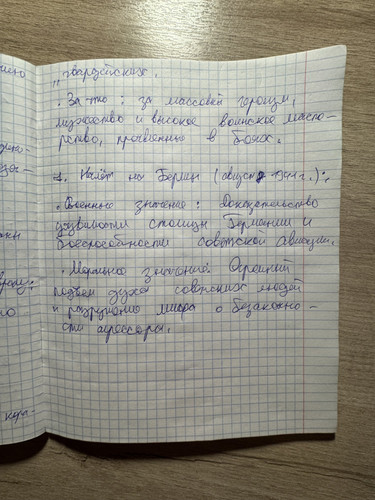 „гвардейских.
• За что: за массовый героизм,
мужество и высокое воинское масте-
рство, проявленные в боях.
4. Налёт на Берлин (август 1941 г.):
• Военные значение: доказательство
уязвимости столицы Германии и
боеспособности советской авиации.
• Моральное значение: Огромный
подъем духа советских людей
и разрушение мифа о безнаказанно-
сти агрессоры.
кора-